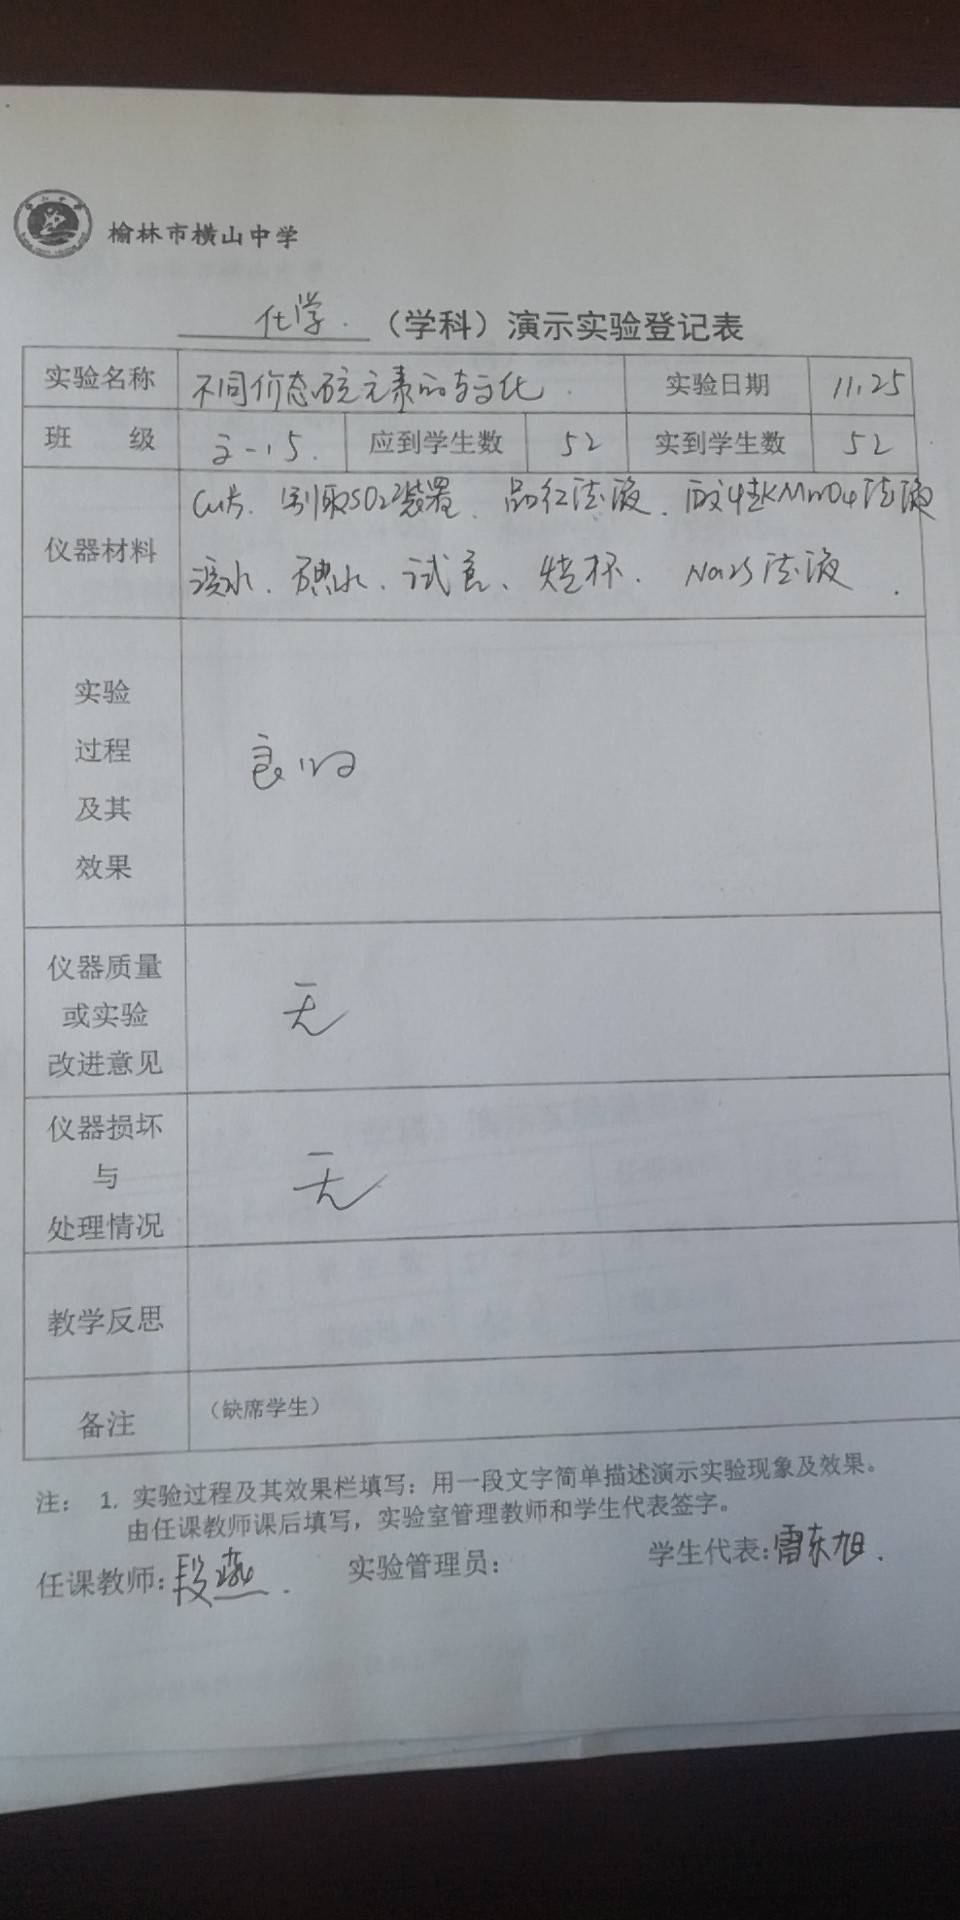 榆林市横山中学
化学 （学科）演示实验登记表
实验名称 不同价态硫元素的转化 实验日期 11.25
班 级 高一15. 应到学生数 52 实到学生数 52
仪器材料 Cu片、制取SO2装置、品红溶液、酸性KMnO4溶液
溴水、碘水、试管、烧杯、Na2S溶液.
实验
过程
及其
效果
良好
仪器质量
或实验
改进意见
无
仪器损坏
与
处理情况
无
教学反思
备注 （缺席学生）
注： 1. 实验过程及其效果栏填写：用一段文字简单描述演示实验现象及效果。
由任课教师课后填写，实验室管理教师和学生代表签字。
任课教师：段燕. 实验管理员： 学生代表：雷东旭.